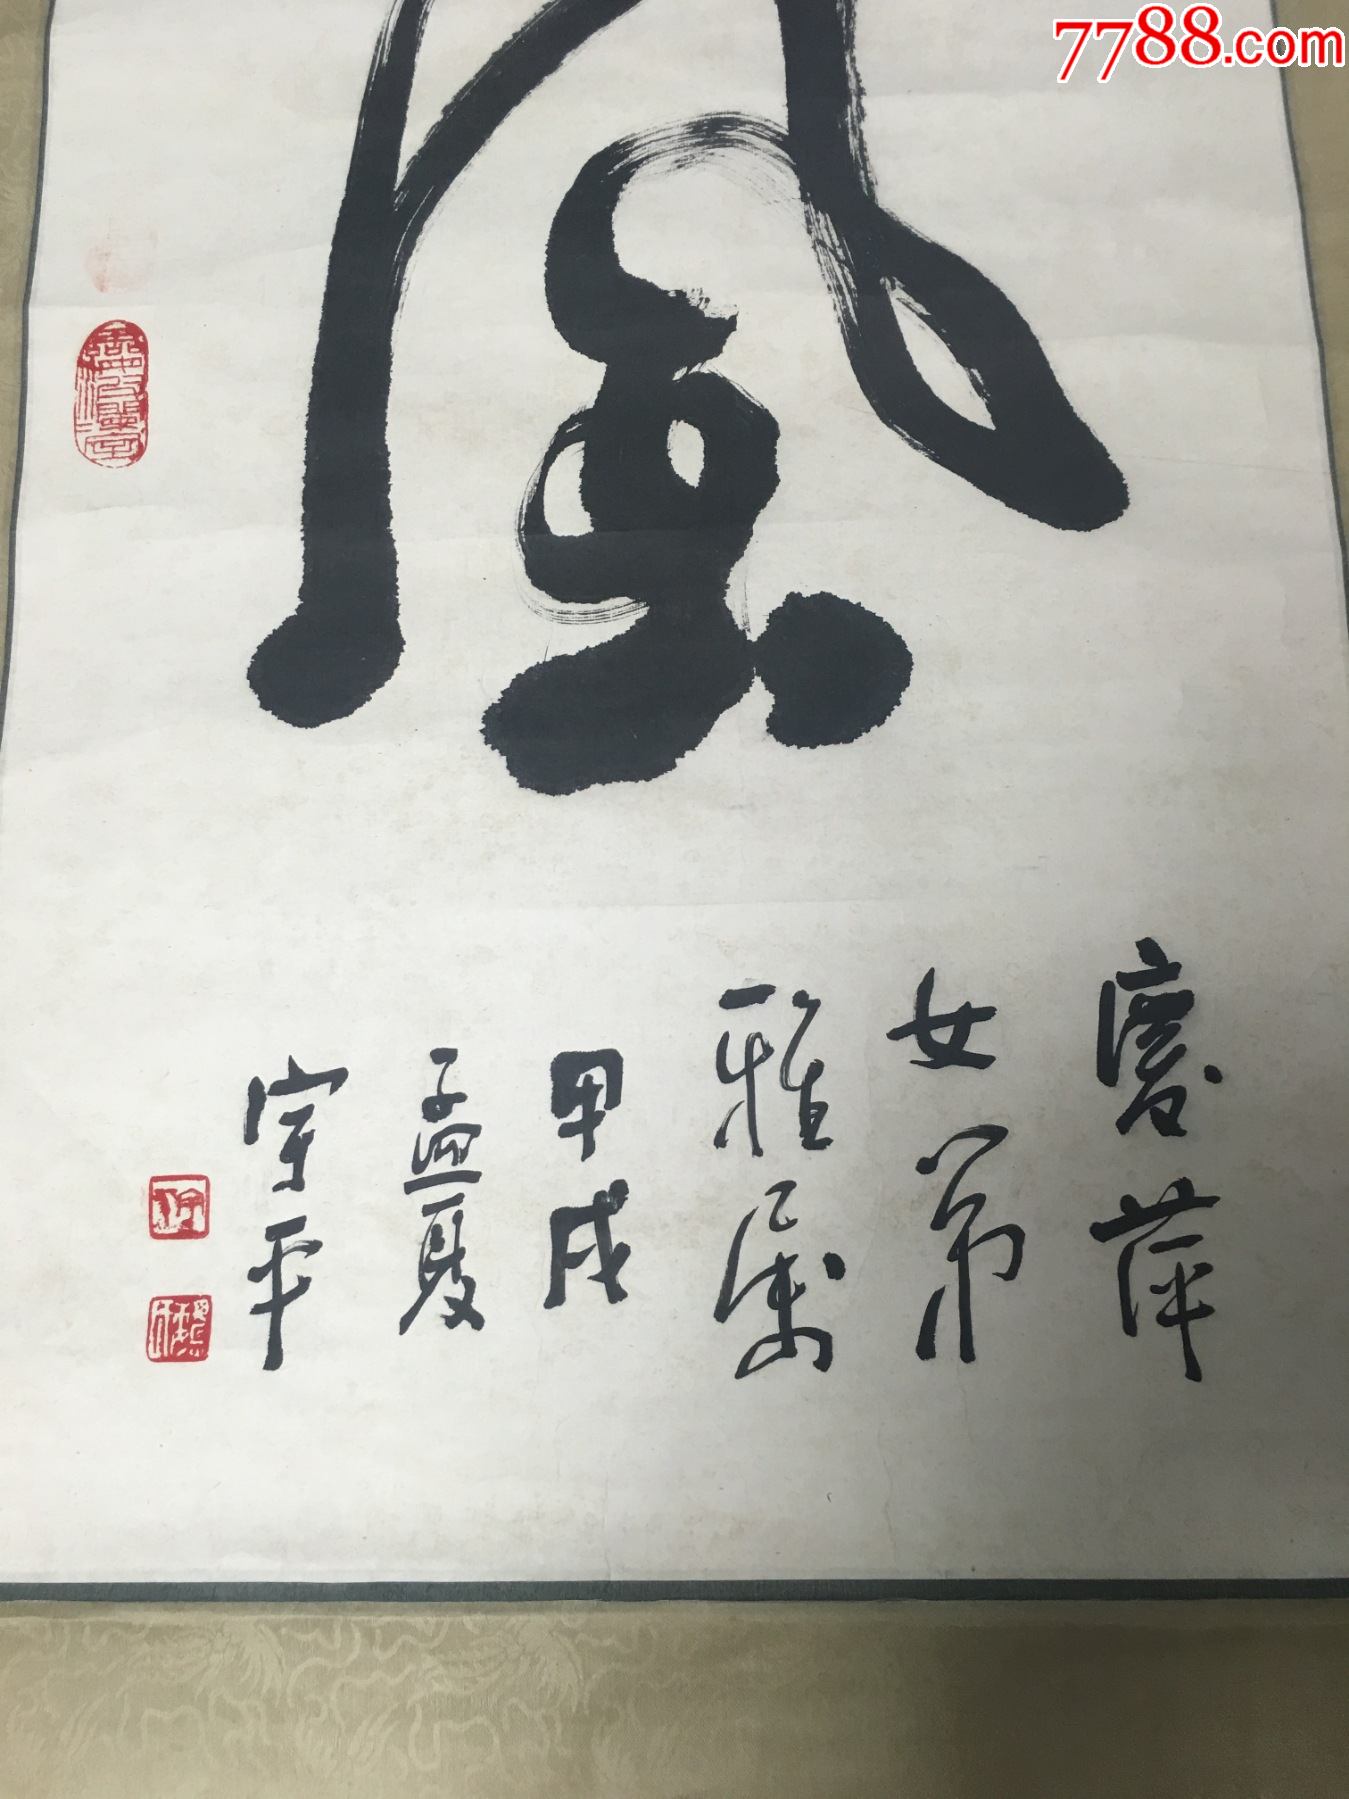 7788.com
風
慶萍
女弟
雅屬
甲戌
孟夏
宇平